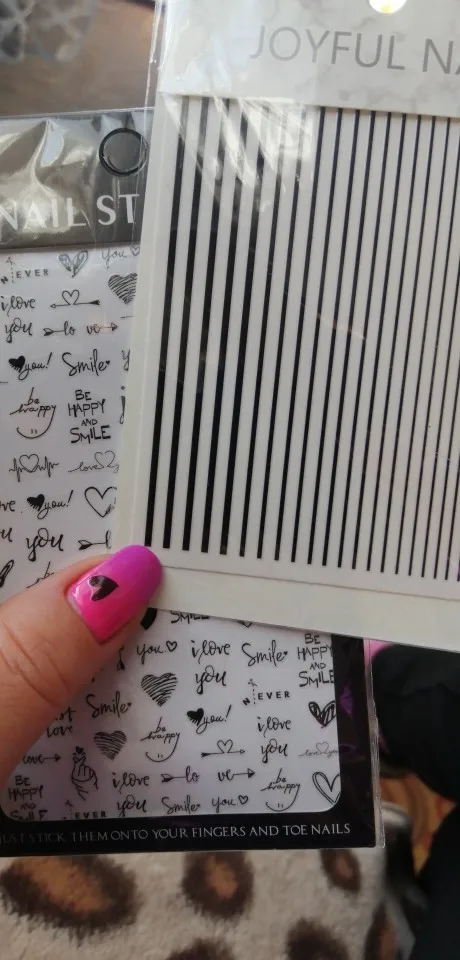 JOYFUL NA
NAIL ST
you
EVER
i love
you
lo ve
you!
Smile
be
happy
BE
HAPPY
AND
SMILE
love
you!
you
SMILE
you
i love
you
Smile
BE
HAPPY
AND
SMILE
EVER
Smile
love
be
happy
you!
i love
you
love
BE
HAPPY
AND
i love
you
lo ve
be
happy
EVER
Smile
you
JUST STICK THEM ONTO YOUR FINGERS AND TOE NAILS